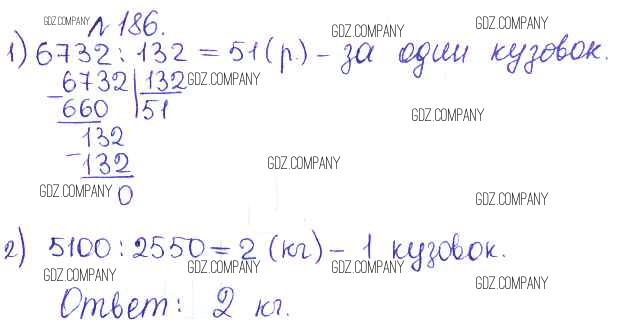 GDZ.COMPANY № 186. GDZ.COMPANY GDZ.COMPANY
1) 6732 : 132 = 51 (р.) – за один кузовок.
6732 | 132 GDZ.COMPANY
– 660 | 51 GDZ.COMPANY
132
– 132 GDZ.COMPANY
GDZ.COMPANY 0 GDZ.COMPANY
2) 5100 : 2550 = 2 (кг) – 1 кузовок.
GDZ.COMPANY GDZ.COMPANY GDZ.COMPANY GDZ.COMPANY
Ответ: 2 кг.